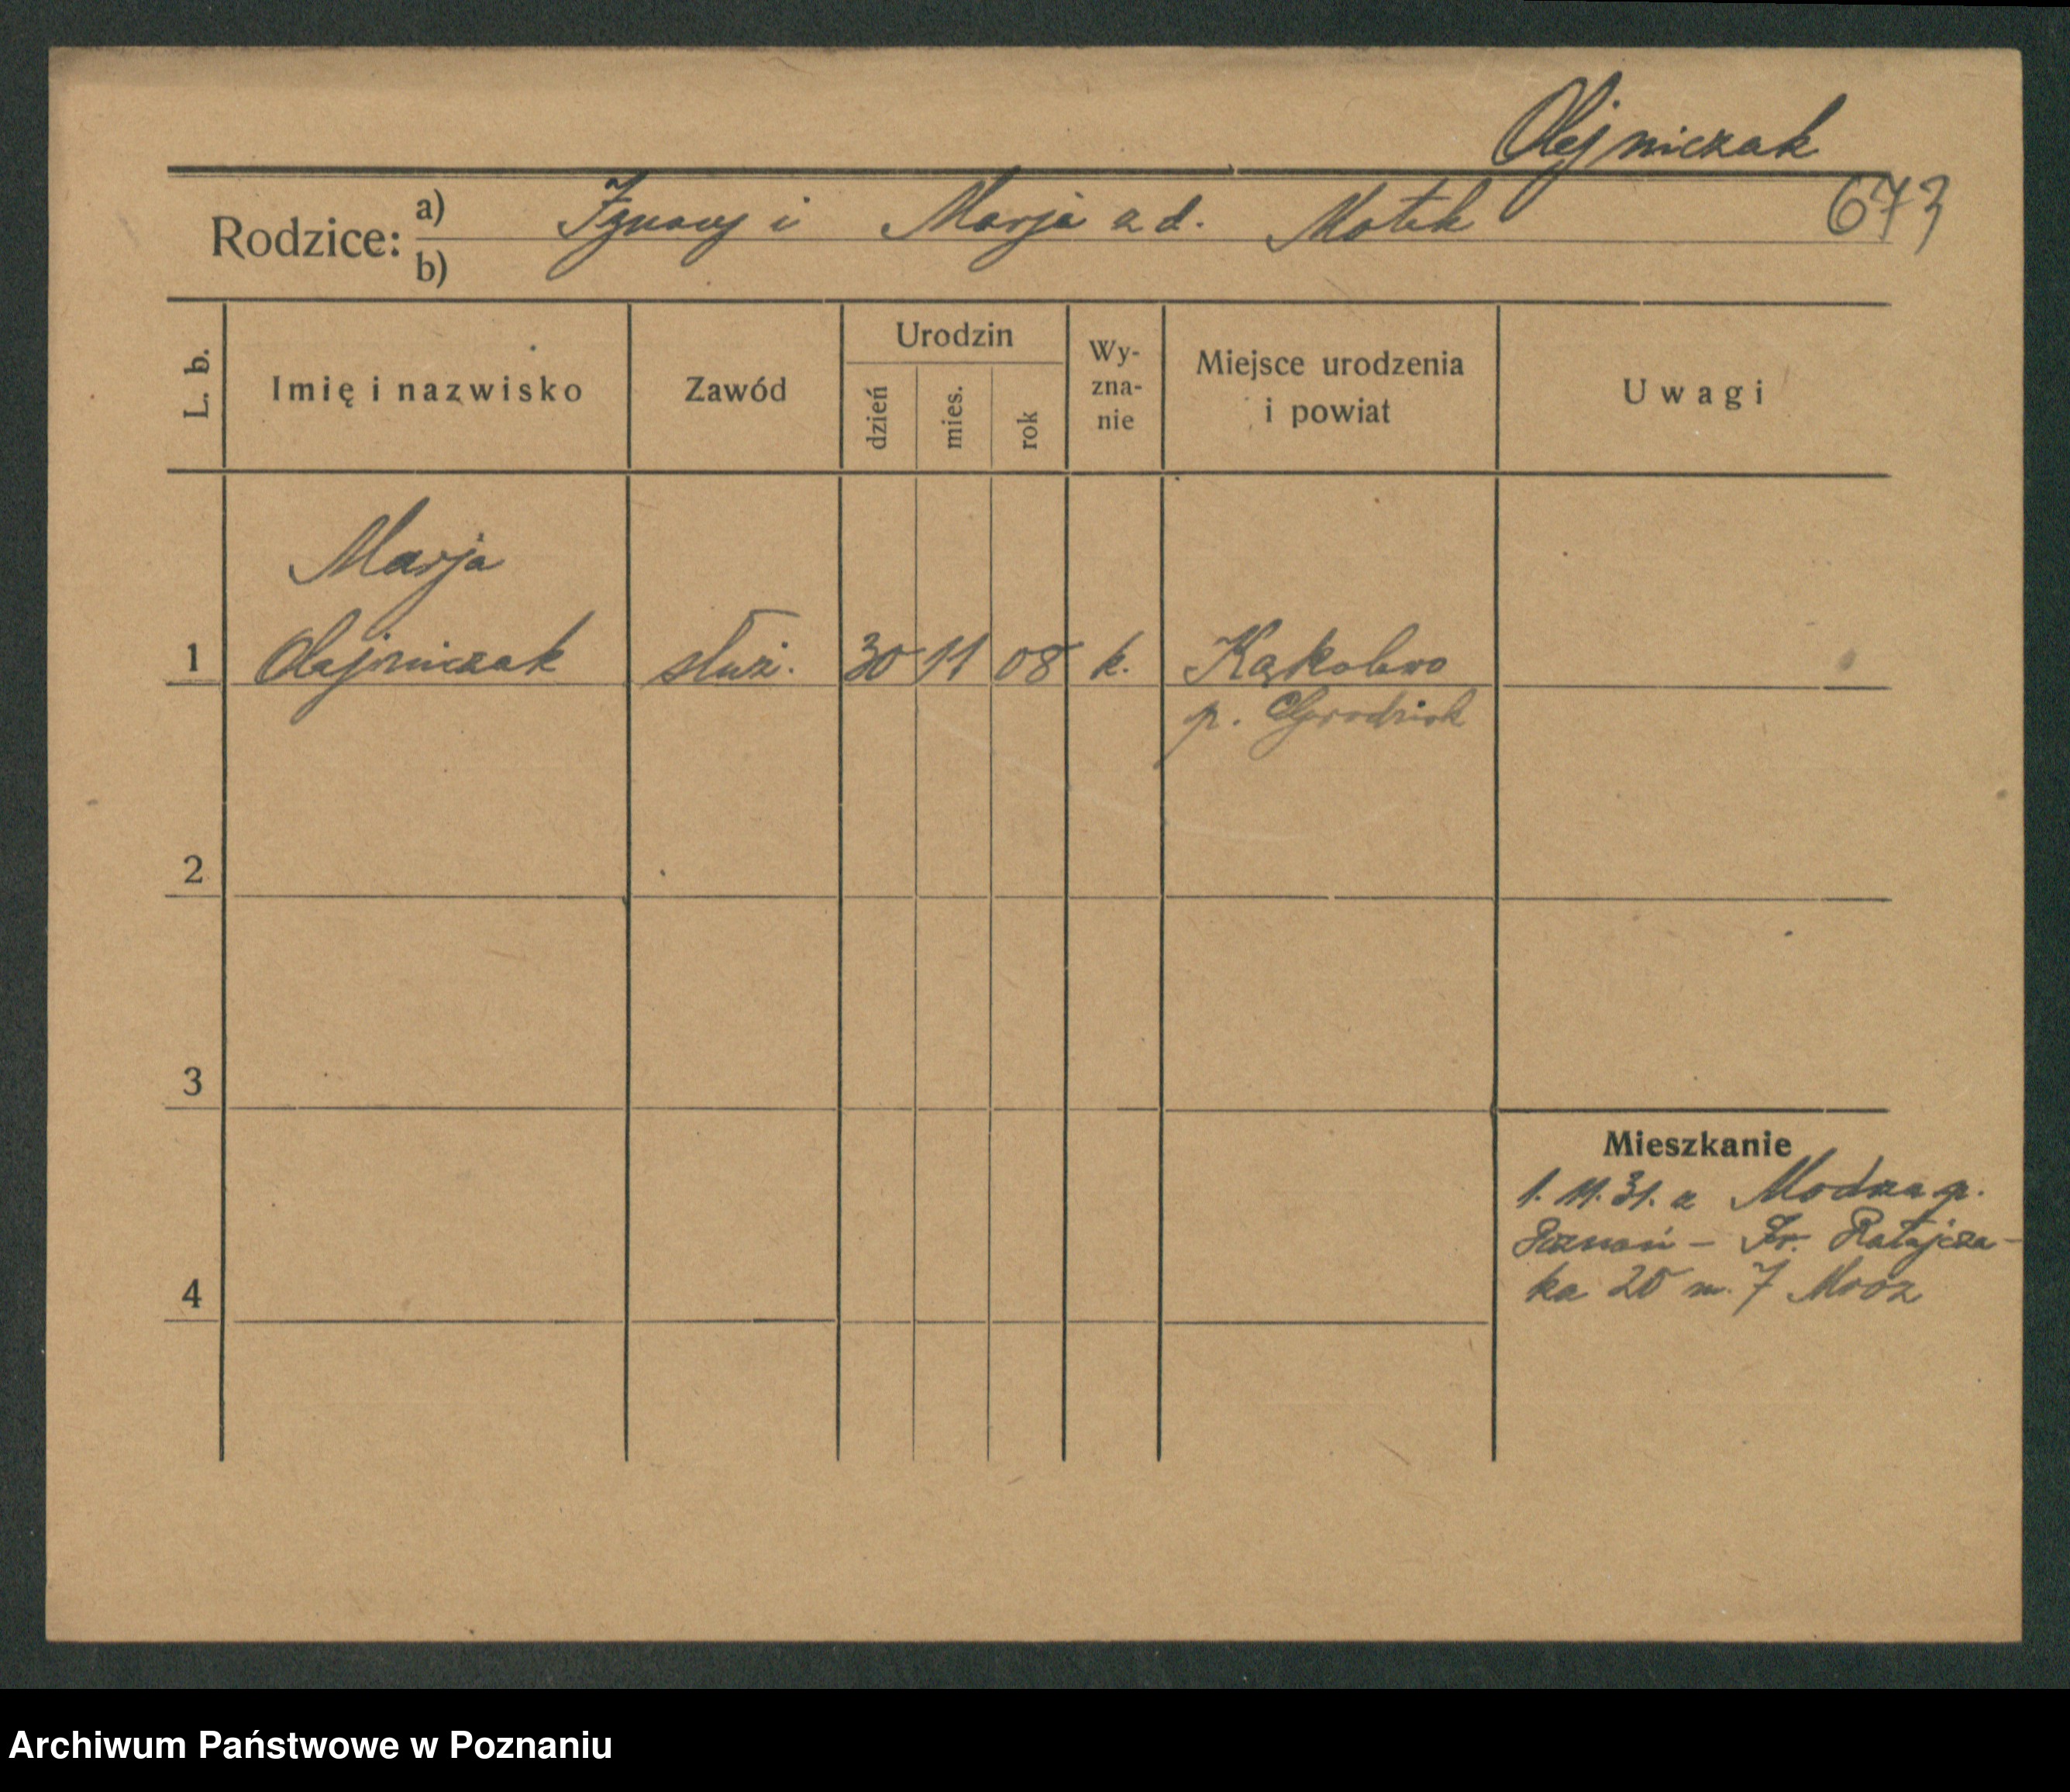 Olejniczak
673
Rodzice: a) Ignacy i Marja z d. Motek
b)
L. b.
Imię i nazwisko
Zawód
Urodzin
dzień
mies.
rok
Wy-
zna-
nie
Miejsce urodzenia
i powiat
Uwagi
Marja
1 Olejniczak służ. 30 11 08 k. Kąkolewo
p. Grodzisk
2
3
4
Mieszkanie
1. 11. 31. z p.
Poznań – Fr. Ratajcza-
ka 20 m. 7 Mróz
Archiwum Państwowe w Poznaniu